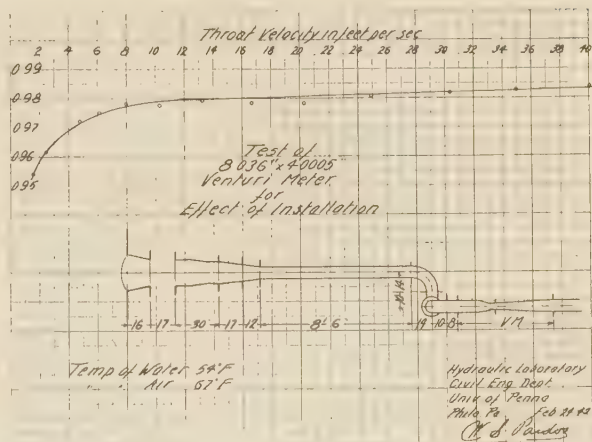 Throat Velocity in feet per sec
2 4 6 8 10 12 14 16 18 20 22 24 26 28 30 32 34 36 38 40
0.99
0.98
0.97
0.96
0.95
Test of
8.036" x 4.0005"
Venturi Meter
for
Effect of Installation
16 17 30 17 12 8'-6 19 10 8 VM
Temp of Water 54°F
" " Air 67°F
Hydraulic Laboratory
Civil Eng Dept.
Univ of Penna
Phila Pa. Feb 24 42
W. S. Pardoe